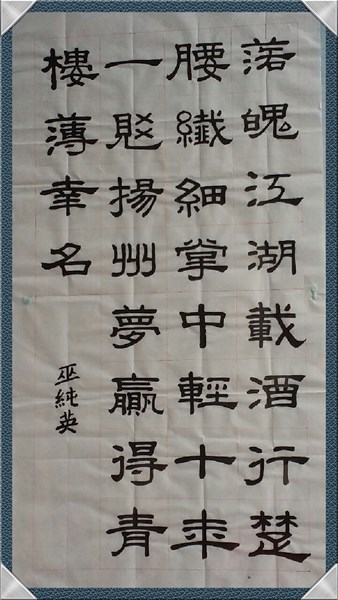 落魄江湖載酒行楚
腰纖細掌中輕十年
一覺揚州夢贏得青
樓薄幸名
巫純英